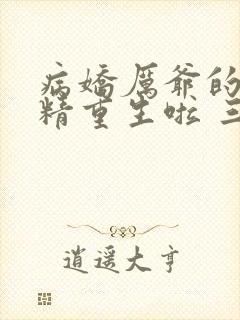 病娇厲爷的
精重生啦 三
逍遥大亨